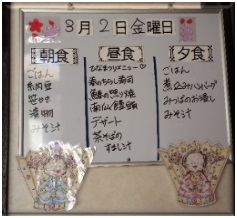 3月2日金曜日
朝食
ごはん
納豆
笹かま
漬物
みそ汁
昼食
ひなまつりメニュー♡
春のちらし寿司
鰆の照り焼
南仙饅頭
デザート
茶そばの
すまし汁
夕食
ごはん
煮込みハンバーグ
みつばのお浸し
みそ汁